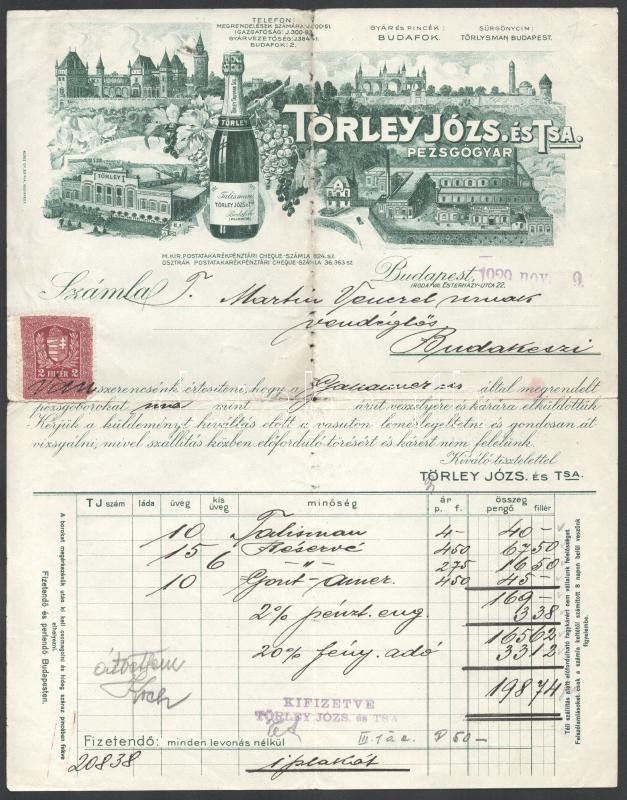 TELEFON:
MEGRENDELÉSEK SZÁMÁRA: J.300-91.
IGAZGATÓSÁG: J.300-93.
GYÁRVEZETŐSÉG: J.364-51.
BUDAFOK: 2.
GYÁR ÉS PINCÉK:
BUDAFOK.
SÜRGÖNYCIM:
TÖRLYSMAN BUDAPEST.
TÖRLEY JÓZS. ÉS TSA.
PEZSGŐGYÁR
TÖRLEY
TÖRLEY
Talisman
TÖRLEY JÓZS. ÉS TSA
Budafok
M. KIR. POSTATAKARÉKPÉNZTÁRI CHEQUE-SZÁMLA 824. SZ.
OSZTRÁK POSTATAKARÉKPÉNZTÁRI CHEQUE-SZÁMLA 36.363 SZ.
Budapest, 1929 nov. 9.
IRODA: VIII. ESTERHÁZY-UTCA 22.
Számla T. Martin Venczel urnak
vendéglős
Budakeszi
2 FILLÉR 2
Van szerencsénk értesíteni, hogy a által megrendelt
pezsgőborokat mint árut veszélyére és kárára elküldöttük.
Kérjük a küldeményt kiváltás előtt a vasúton lemérlegeltetni és gondosan át
vizsgálni, mivel szállítás közben előforduló törésért és kárért nem felelünk.
Kiváló tisztelettel
TÖRLEY JÓZS. ÉS TSA.
TJ szám láda üveg kis üveg minőség ár p. f. összeg pengő fillér
10 Talisman 4- 40-
15 Réservé 450 6750
6 -"- 275 1650
10 Gout-Amer. 450 45-
169-
2% pénzt. eng. 338
16562
20% fény. adó 3312
19874
átvettem
KIFIZETVE
TÖRLEY JÓZS. és TSA
Fizetendő: minden levonás nélkül
P 50-
20838
1 plakát
A borokat megérkezésük után ki kell csomagolni és hideg száraz pincékban fekve elhelyezni.
Fizetendő és perlendő Budapesten.
Téli szállítás alatt előfordulható fagykárért nem vállalunk felelősséget.
Felszólamlásokat csak a számla keltétől számított 8 napon belül veszünk figyelembe.